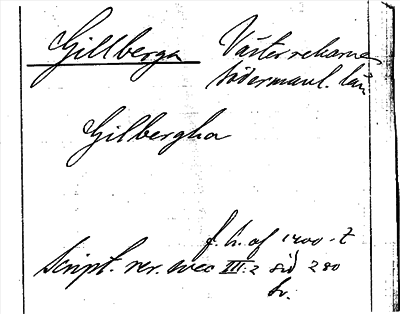 Gillberga Västerrekarne
Södermanl. län
Gilbergha
f. h. af 1400-t
Script. rer. svec III:2 sid 280
br.